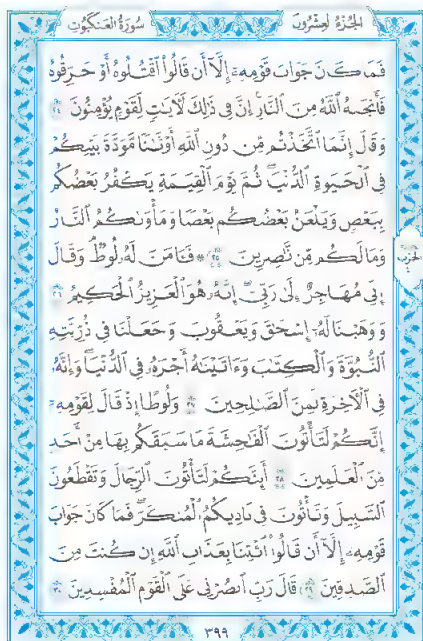 الجُزْءُ العِشْرُونَ سُورَةُ العَنكَبُوتِ
فَمَا كَانَ جَوَابَ قَوْمِهِۦٓ إِلَّآ أَن قَالُوا۟ ٱقْتُلُوهُ أَوْ حَرِّقُوهُ
فَأَنجَىٰهُ ٱللَّهُ مِنَ ٱلنَّارِ إِنَّ فِى ذَٰلِكَ لَءَايَٰتٍ لِّقَوْمٍ يُؤْمِنُونَ ٢٤
وَقَالَ إِنَّمَا ٱتَّخَذْتُم مِّن دُونِ ٱللَّهِ أَوْثَٰنًا مَّوَدَّةَ بَيْنِكُمْ
فِى ٱلْحَيَوٰةِ ٱلدُّنْيَا ثُمَّ يَوْمَ ٱلْقِيَٰمَةِ يَكْفُرُ بَعْضُكُم
بِبَعْضٍ وَيَلْعَنُ بَعْضُكُم بَعْضًا وَمَأْوَىٰكُمُ ٱلنَّارُ
وَمَا لَكُم مِّن نَّٰصِرِينَ ٢٥ ۞ فَـَٔامَنَ لَهُۥ لُوطٌ وَقَالَ
إِنِّى مُهَاجِرٌ إِلَىٰ رَبِّىٓ إِنَّهُۥ هُوَ ٱلْعَزِيزُ ٱلْحَكِيمُ ٢٦
وَوَهَبْنَا لَهُۥٓ إِسْحَٰقَ وَيَعْقُوبَ وَجَعَلْنَا فِى ذُرِّيَّتِهِ
ٱلنُّبُوَّةَ وَٱلْكِتَٰبَ وَءَاتَيْنَٰهُ أَجْرَهُۥ فِى ٱلدُّنْيَا وَإِنَّهُۥ
فِى ٱلْءَاخِرَةِ لَمِنَ ٱلصَّٰلِحِينَ ٢٧ وَلُوطًا إِذْ قَالَ لِقَوْمِهِۦٓ
إِنَّكُمْ لَتَأْتُونَ ٱلْفَٰحِشَةَ مَا سَبَقَكُم بِهَا مِنْ أَحَدٍ
مِّنَ ٱلْعَٰلَمِينَ ٢٨ أَئِنَّكُمْ لَتَأْتُونَ ٱلرِّجَالَ وَتَقْطَعُونَ
ٱلسَّبِيلَ وَتَأْتُونَ فِى نَادِيكُمُ ٱلْمُنكَرَ فَمَا كَانَ جَوَابَ
قَوْمِهِۦٓ إِلَّآ أَن قَالُوا۟ ٱئْتِنَا بِعَذَابِ ٱللَّهِ إِن كُنتَ مِنَ
ٱلصَّٰدِقِينَ ٢٩ قَالَ رَبِّ ٱنصُرْنِى عَلَى ٱلْقَوْمِ ٱلْمُفْسِدِينَ ٣٠
٣٩٩